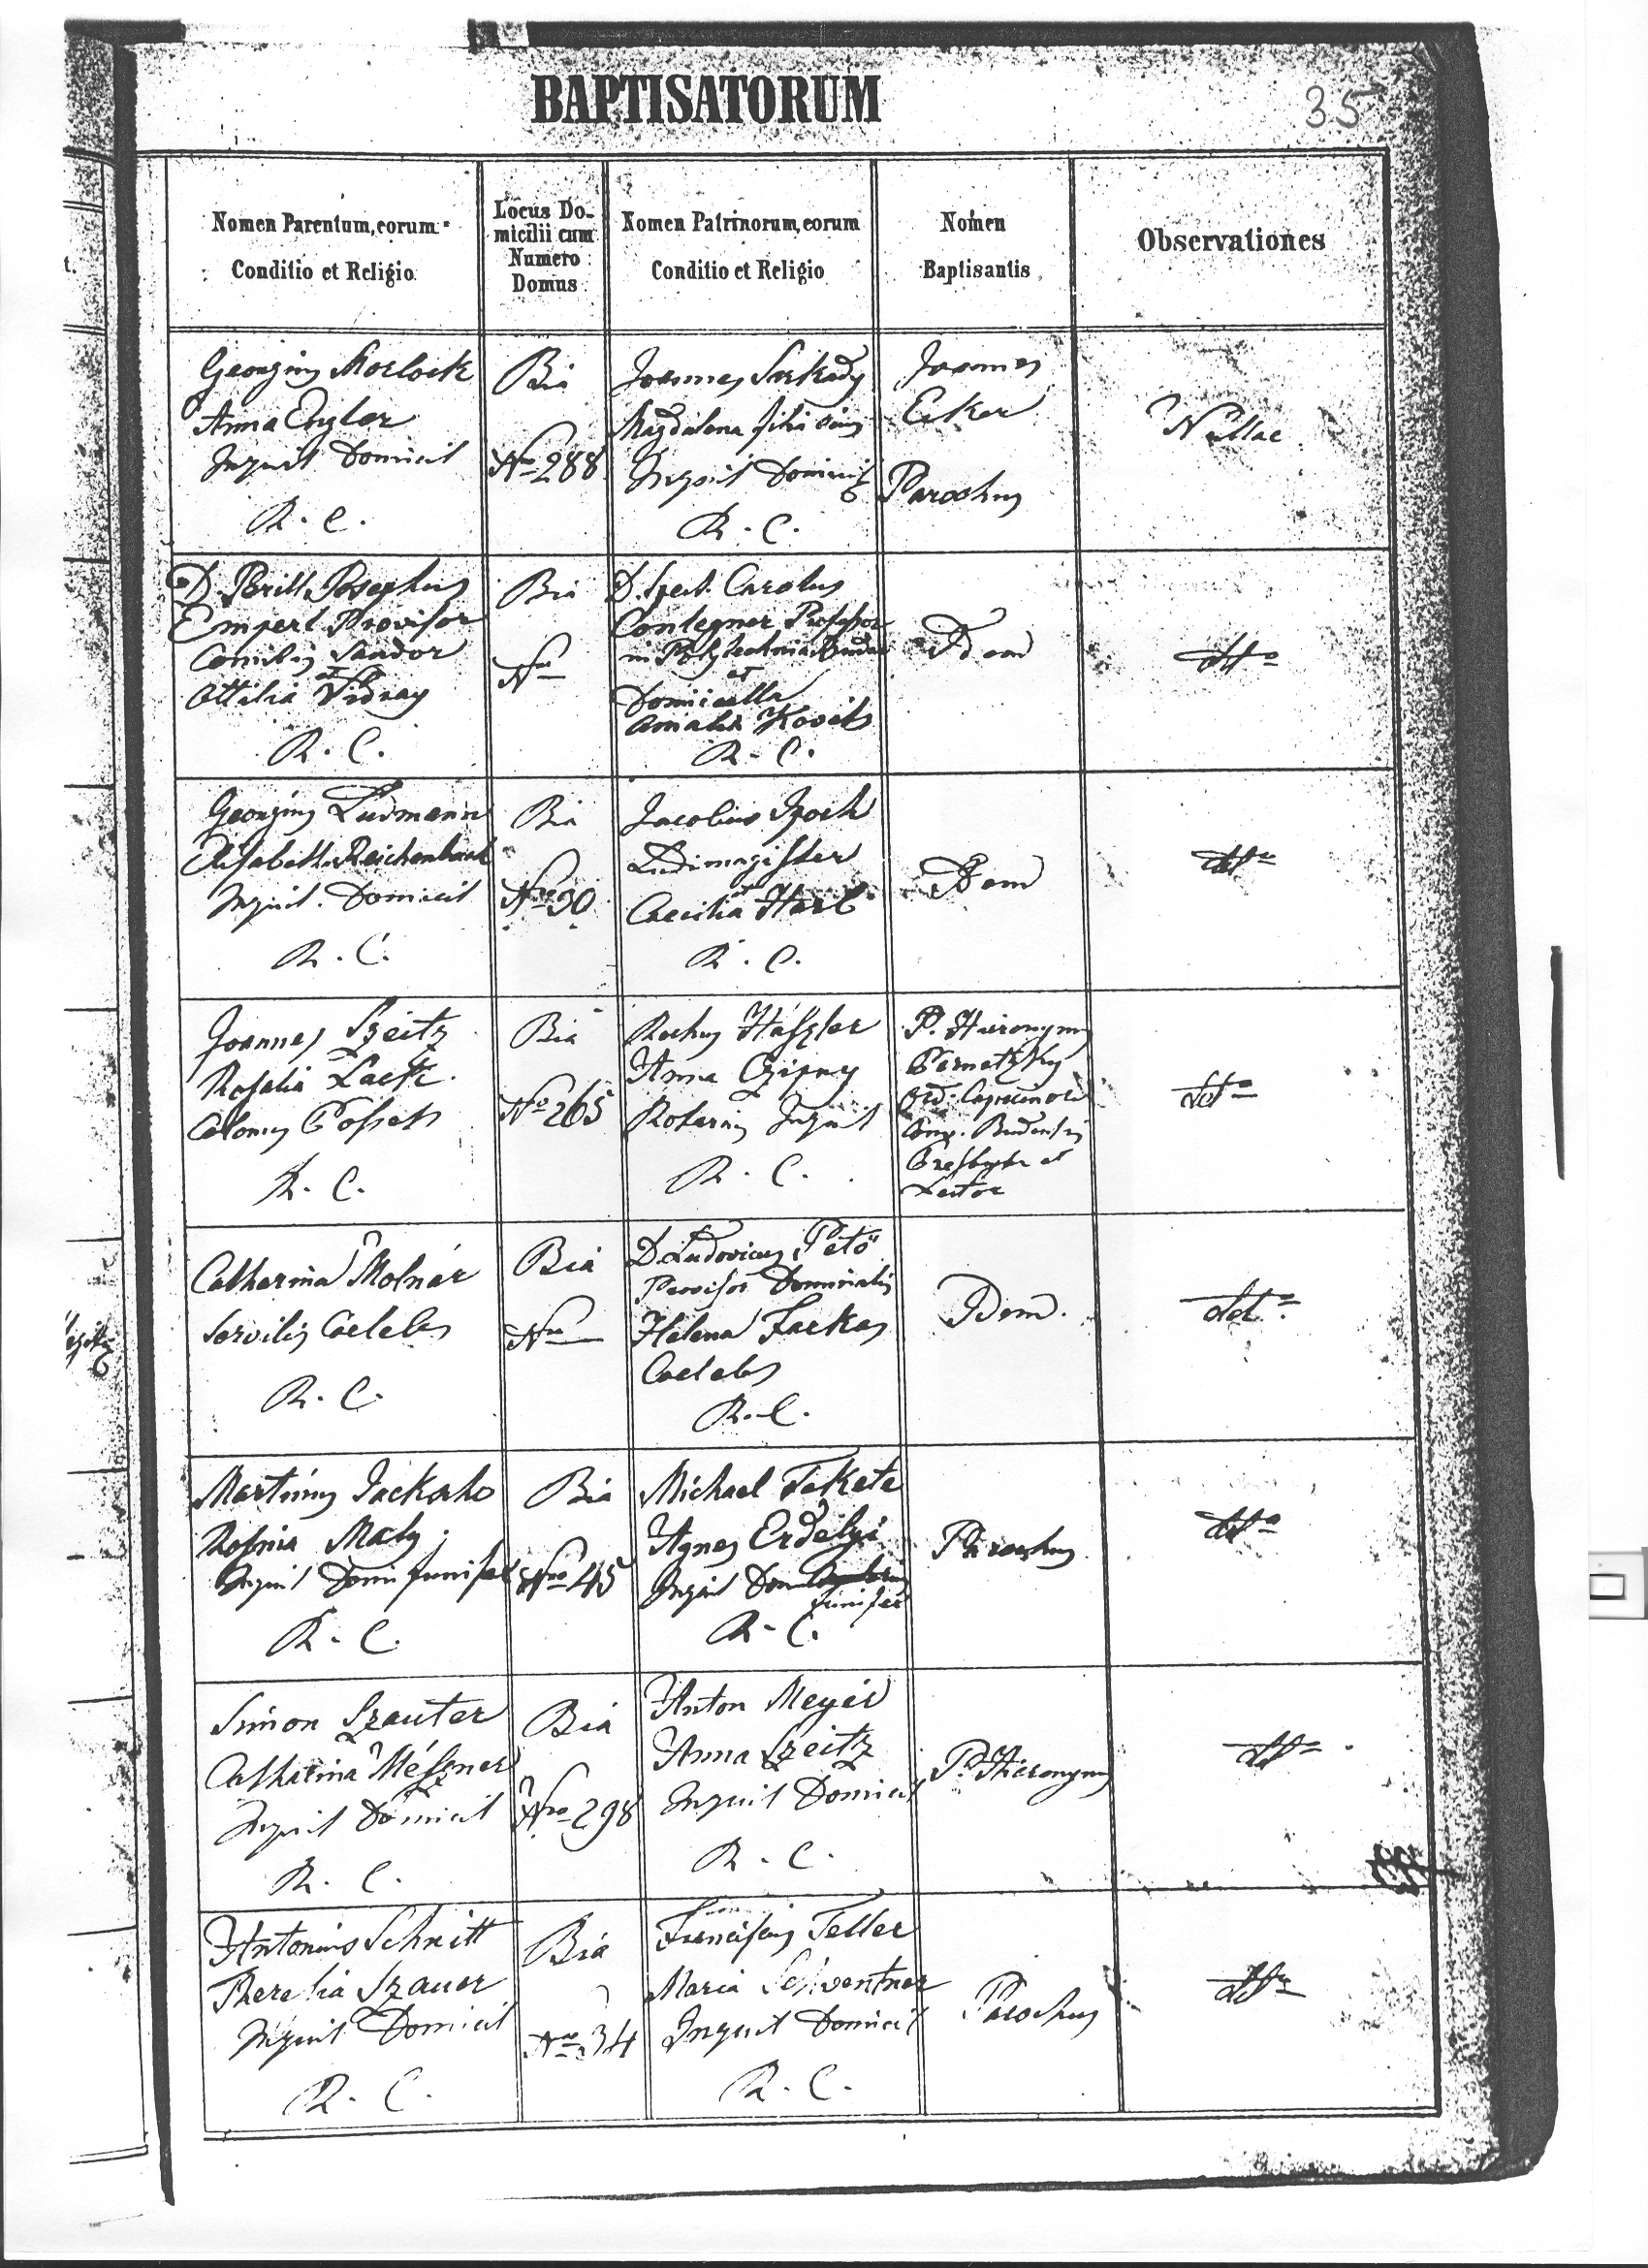 BAPTISATORUM
35
Nomen Parentum, eorum
Conditio et Religio
Locus Do-
micilii cum
Numero
Domus
Nomen Patrinorum, eorum
Conditio et Religio
Nomen
Baptisantis
Observationes
Georgius Morlock
Anna Engler
Inquil Domicil
R. C.
Bia
Nro 288
Joannes Sarkady
Magdalena
Inquil Domicil
R. C.
Joannes
Erker
Parochus
Nullae
D. Josephus
Provisor
Comitis Sandor
et
Ottilia Vidnay
R. C.
Bia
Nro
D. Spect. Carolus
Professor
in
et
Domicella
Amalia Kováts
R. C.
Idem
dtto
Georgius Ludmann
Elisabetha Reichenback
Inquil. Domicil
R. C.
Bia
Nro 90
Jacobus
Ludimagister
et
Caecilia
R. C.
Idem
dtto
Joannes Szeitz
Rosalia
Colonus Possess
R. C.
Bia
Nro 265
Rochus Haszler
Anna
Inquil
R. C.
P. Hieronymus
Ord. Capucinor
Conv. Budensis
Presbyter et
Lector
dtto
Catharina Molnár
Servilis Caelebs
R. C.
Bia
Nro
D. Ludovicus Pető
Provisor Dominialis
Helena Farkas
Caelebs
R. C.
Idem.
dtto
Martinus
Rosina Maly
Inquil Domi
R. C.
Bia
Nro 45
Michael Fekete
Agnes Erdélyi
Inquil
R. C.
Parochus
dtto
Simon Szauter
Catharina Mészner
Inquil Domicil
R. C.
Bia
Nro 298
Anton Meyer
Anna Szeitz
Inquil Domicil
R. C.
P. Hieronymus
dtto
Antonius Schnitt
Theresia Szauer
Inquil Domicil
R. C.
Bia
Nro 34
Franciscus Teller
Maria
Inquil Domicil
R. C.
Parochus
dtto